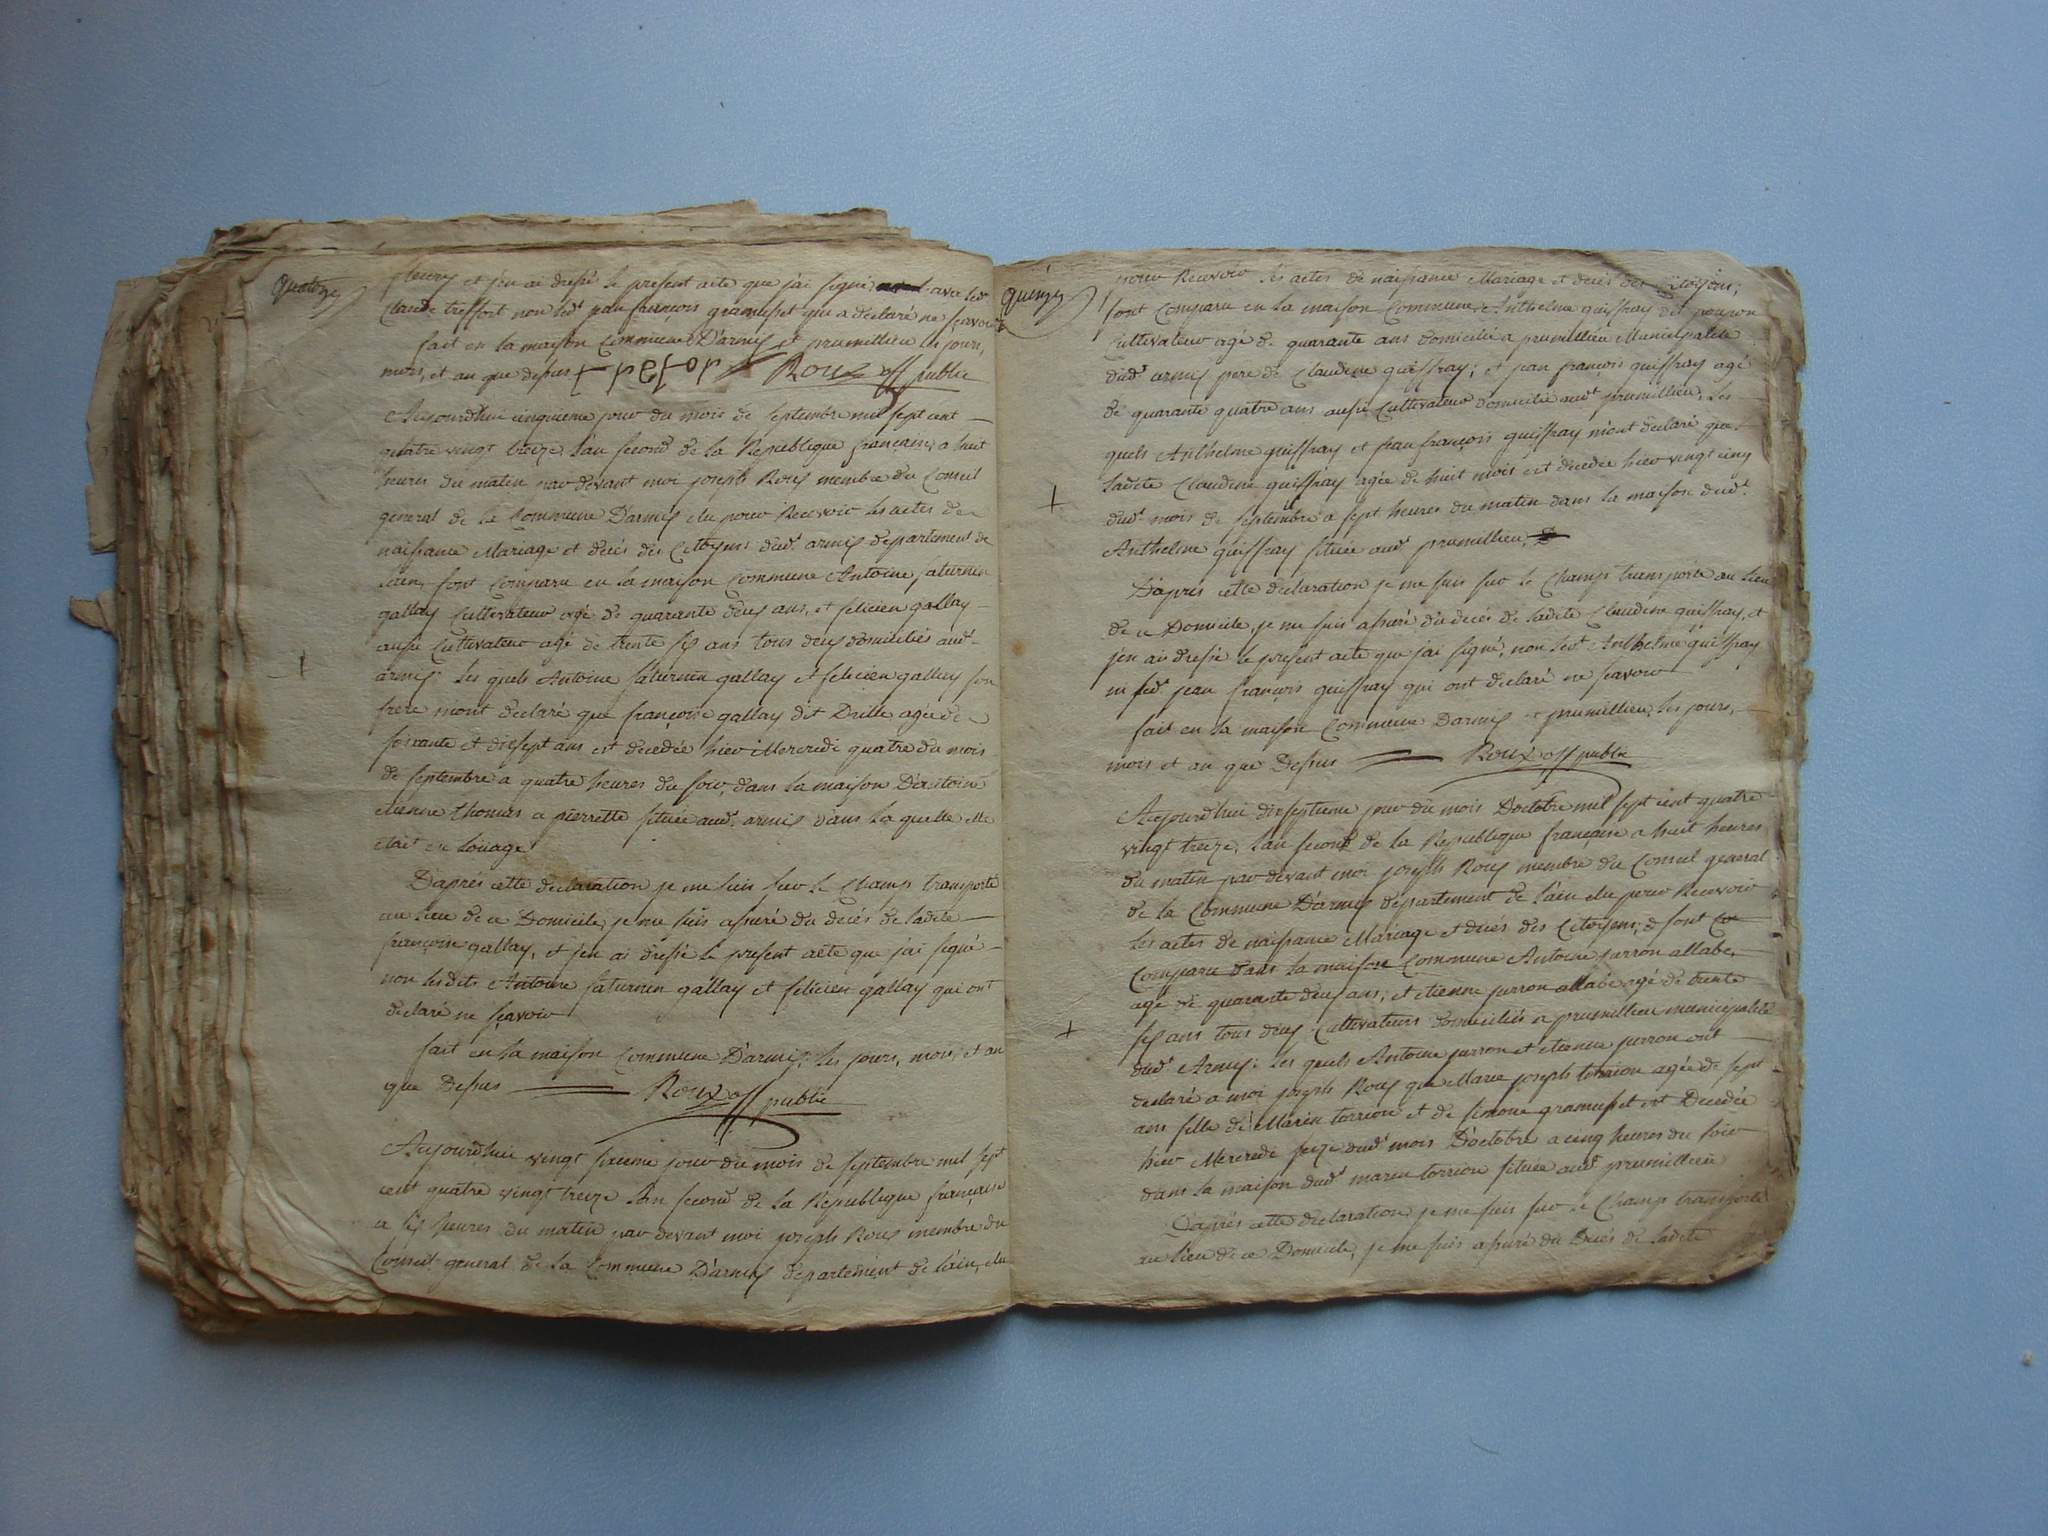 quatorze
fleury et j'en ai dressé le present acte que j'ai signé avec led.t
Claude treffort non led.t jean françois gramusset qui a déclaré ne sçavoir
fait en la maison Commune D'armix et prumillieu les jours,
mois, et an que dessus Roux off public
Aujourdhui cinquieme jour du mois de septembre mil sept cent
quatre vingt treize l'an second de la Republique francaise, a huit
heures du matin par devant moi joseph Roux membre du Conseil
general de la Commune D'armix elu pour Recevoir les actes de
naissance Mariage et decés des Citoyens dud.t armix departement de
l'ain, sont Comparu en la maison Commune Antoine saturnin
gallay Cultivateur agé de quarante deux ans, et felicien gallay
aussi Cultivateur agé de trente six ans tous deux domiciliés aud.t
armix les quels Antoine saturnin gallay et felicien gallay son
frere m'ont declaré que françoise gallay dit Drille agée de
soixante et dixsept ans est decedée hier Mercredi quatre du mois
de septembre a quatre heures du soir, dans la maison D'antoine
etienne thomas a pierrette située aud.t armix dans la quelle elle
etait en loüage
D'aprés cette declaration je me suis sur le Champ transporté
au lieu de ce Domicile, je me suis assuré du decés de ladite
françoise gallay, et j'en ai dréssé le present acte que j'ai signé
non lesdits Antoine saturnin gallay et felicien gallay qui ont
declaré ne sçavoir
fait en la maison Commune D'armix, les jours, mois, et an
que dessus Roux off public
Aujourdhui vingt sixieme jour du mois de septembre mil sept
cent quatre vingt treize l'an second de la Republique française
a six heures du matin par devant moi joseph Roux membre du
Conseil general de la Commune D'armix departement de l'ain, elu
quinze
pour Recevoir les actes de naissance Mariage et decés des Citoyens,
sont Comparu en la maison Commune Anthelme quiffray dit poupon
Cultivateur agé de quarante ans domicilié a prumillieu Municipalité
dud.t armix pere de Claudine quiffray; et jean françois quiffray agé
de quarante quatre ans aussi Cultivateur domicilié aud.t prumillieu, les
quels Anthelme quiffray et jean françois quiffray m'ont declaré que
ladite Claudine quiffray agée de huit mois est decedée hier vingt cinq
dud.t mois de septembre a sept heures du matin dans la maison dud.t
Anthelme quiffray située aud.t prumillieu.
D'apris cette declaration je me suis sur le Champ transporté au lieu
de ce Domicile, je me suis assuré du decés de ladite Claudine quiffray, et
j'en ais dressé le present acte que j'ai signé, non led.t Anthelme quiffray
ni led.t jean françois quiffray qui ont declaré ne sçavoir
fait en la maison Commune D'armix et prumillieu, les jours,
mois et an que Dessus Roux off public
Aujourdhui dixseptieme jour du mois D'octobre mil sept cent quatre
vingt treize, l'an second de la Republique française a huit heures
du matin par devant moi joseph Roux membre du Conseil general
de la Commune D'armix departement de l'ain elu pour Recevoir
les actes de naissance Mariage et decés des Citoyens; sont Co
Comparu dans la maison Commune Antoine jurron allabe,
agé de quarante deux ans, et etienne jurron allabe agé de trente
six ans tous deux Cultivateurs domiciliés a prumillieu municipalité
dud.t Armix: les quels Antoine jurron et etienne jurron ont
declaré a moi joseph Roux que Marie joseph torrion agée de sept
ans fille de Marin torrion et de simone gramusset est Decedée
hier Mercredi seize dud.t mois D'octobre a cinq heures du soir
dans la maison dud.t marin torrion située aud.t prumillieu
D'aprés cette declaration je me suis sur le Champ transporté
au lieu de ce Domicile, je me suis assuré du Decés de ladite